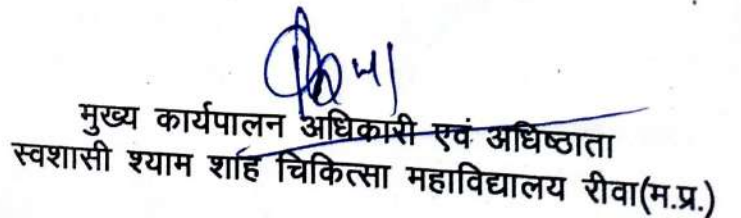 मुख्य कार्यपालन अधिकारी एवं अधिष्ठाता
स्वशासी श्याम शाह चिकित्सा महाविद्यालय रीवा(म.प्र.)